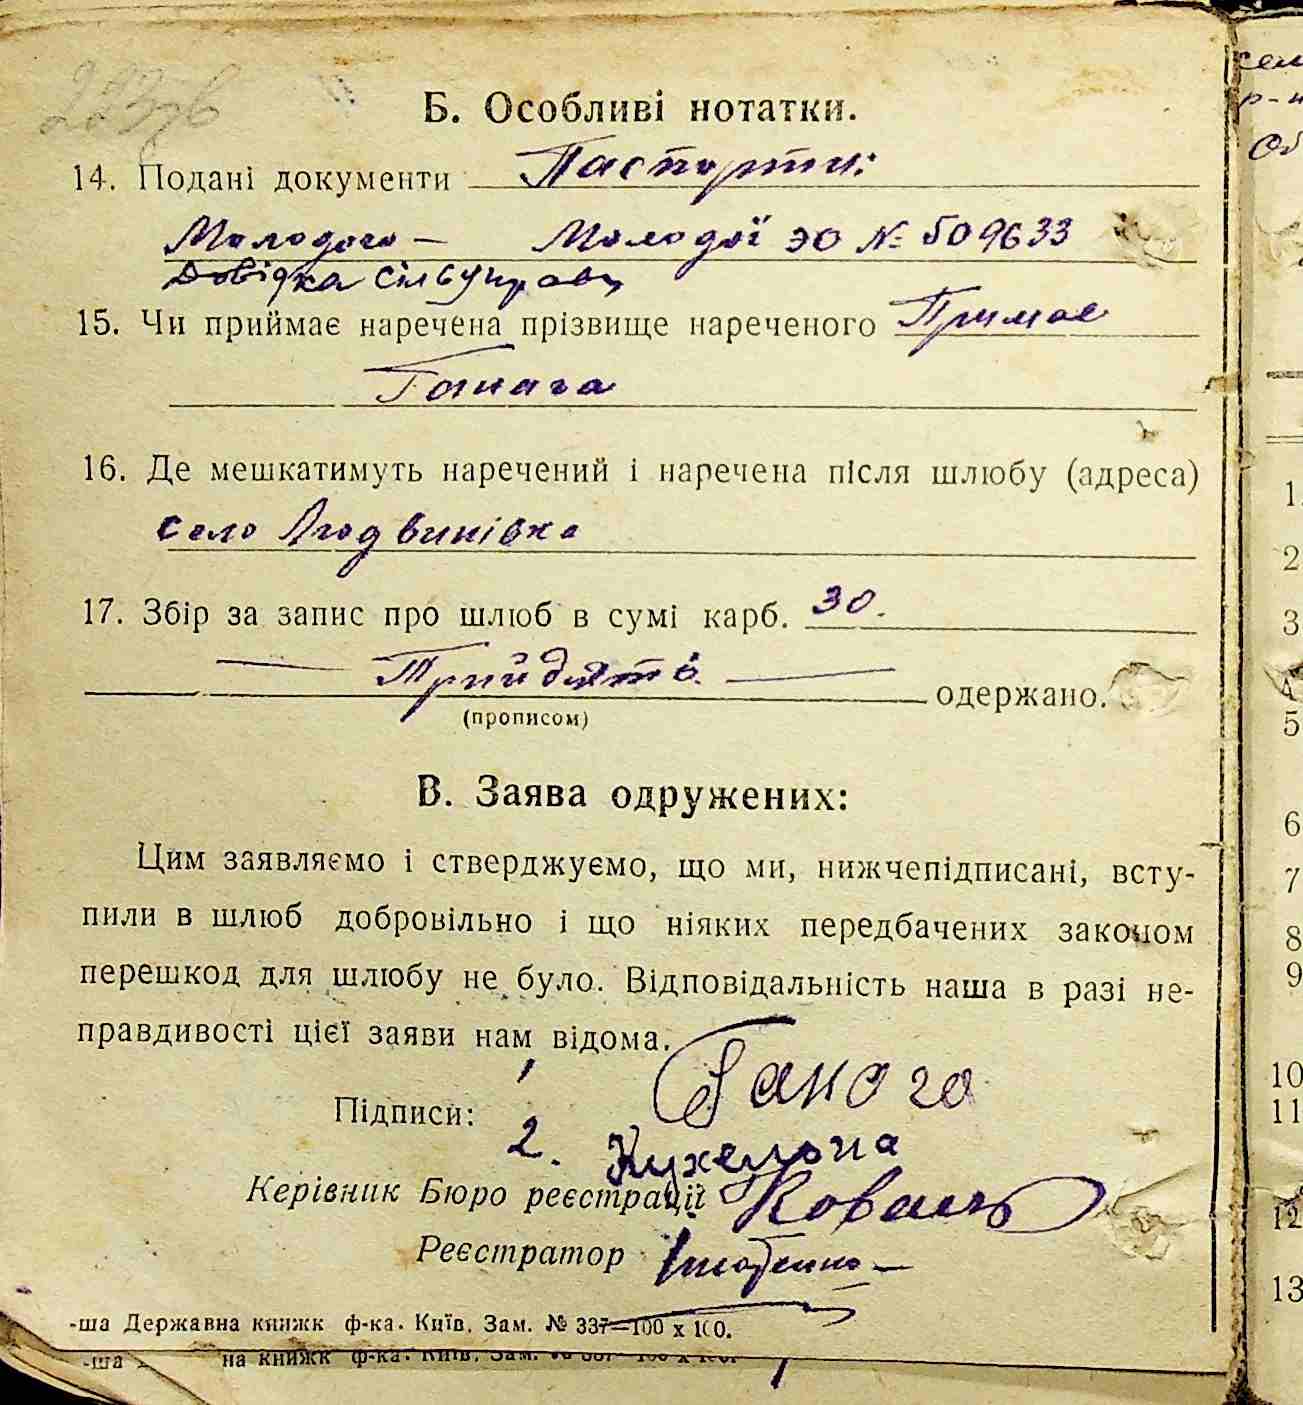 Б. Особливі нотатки.
14. Подані документи Паспорти:
Молодого — Молодої ЭО № 509633
Довідка сільуправи
15. Чи приймає наречена прізвище нареченого Приймає
Ганага
16. Де мешкатимуть наречений і наречена після шлюбу (адреса)
село Людвинівка
17. Збір за запис про шлюб в сумі карб. 30.
Трийцять одержано.
(прописом)
В. Заява одружених:
Цим заявляємо і стверджуємо, що ми, нижчепідписані, всту-
пили в шлюб добровільно і що ніяких передбачених законом
перешкод для шлюбу не було. Відповідальність наша в разі не-
правдивості цієї заяви нам відома.
Підписи: 1 Ганага
2.
Керівник Бюро реєстрації Коваль
Реєстратор
-ша Державна книжк ф-ка. Київ. Зам. № 337—100 x 100.
на книжк ф-ка. Київ. Зам.